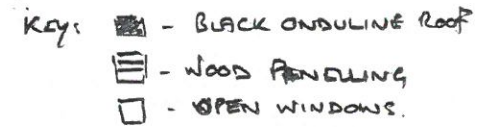 Key: - BLACK ONDULINE ROOF
- WOOD PANELLING
- OPEN WINDOWS.